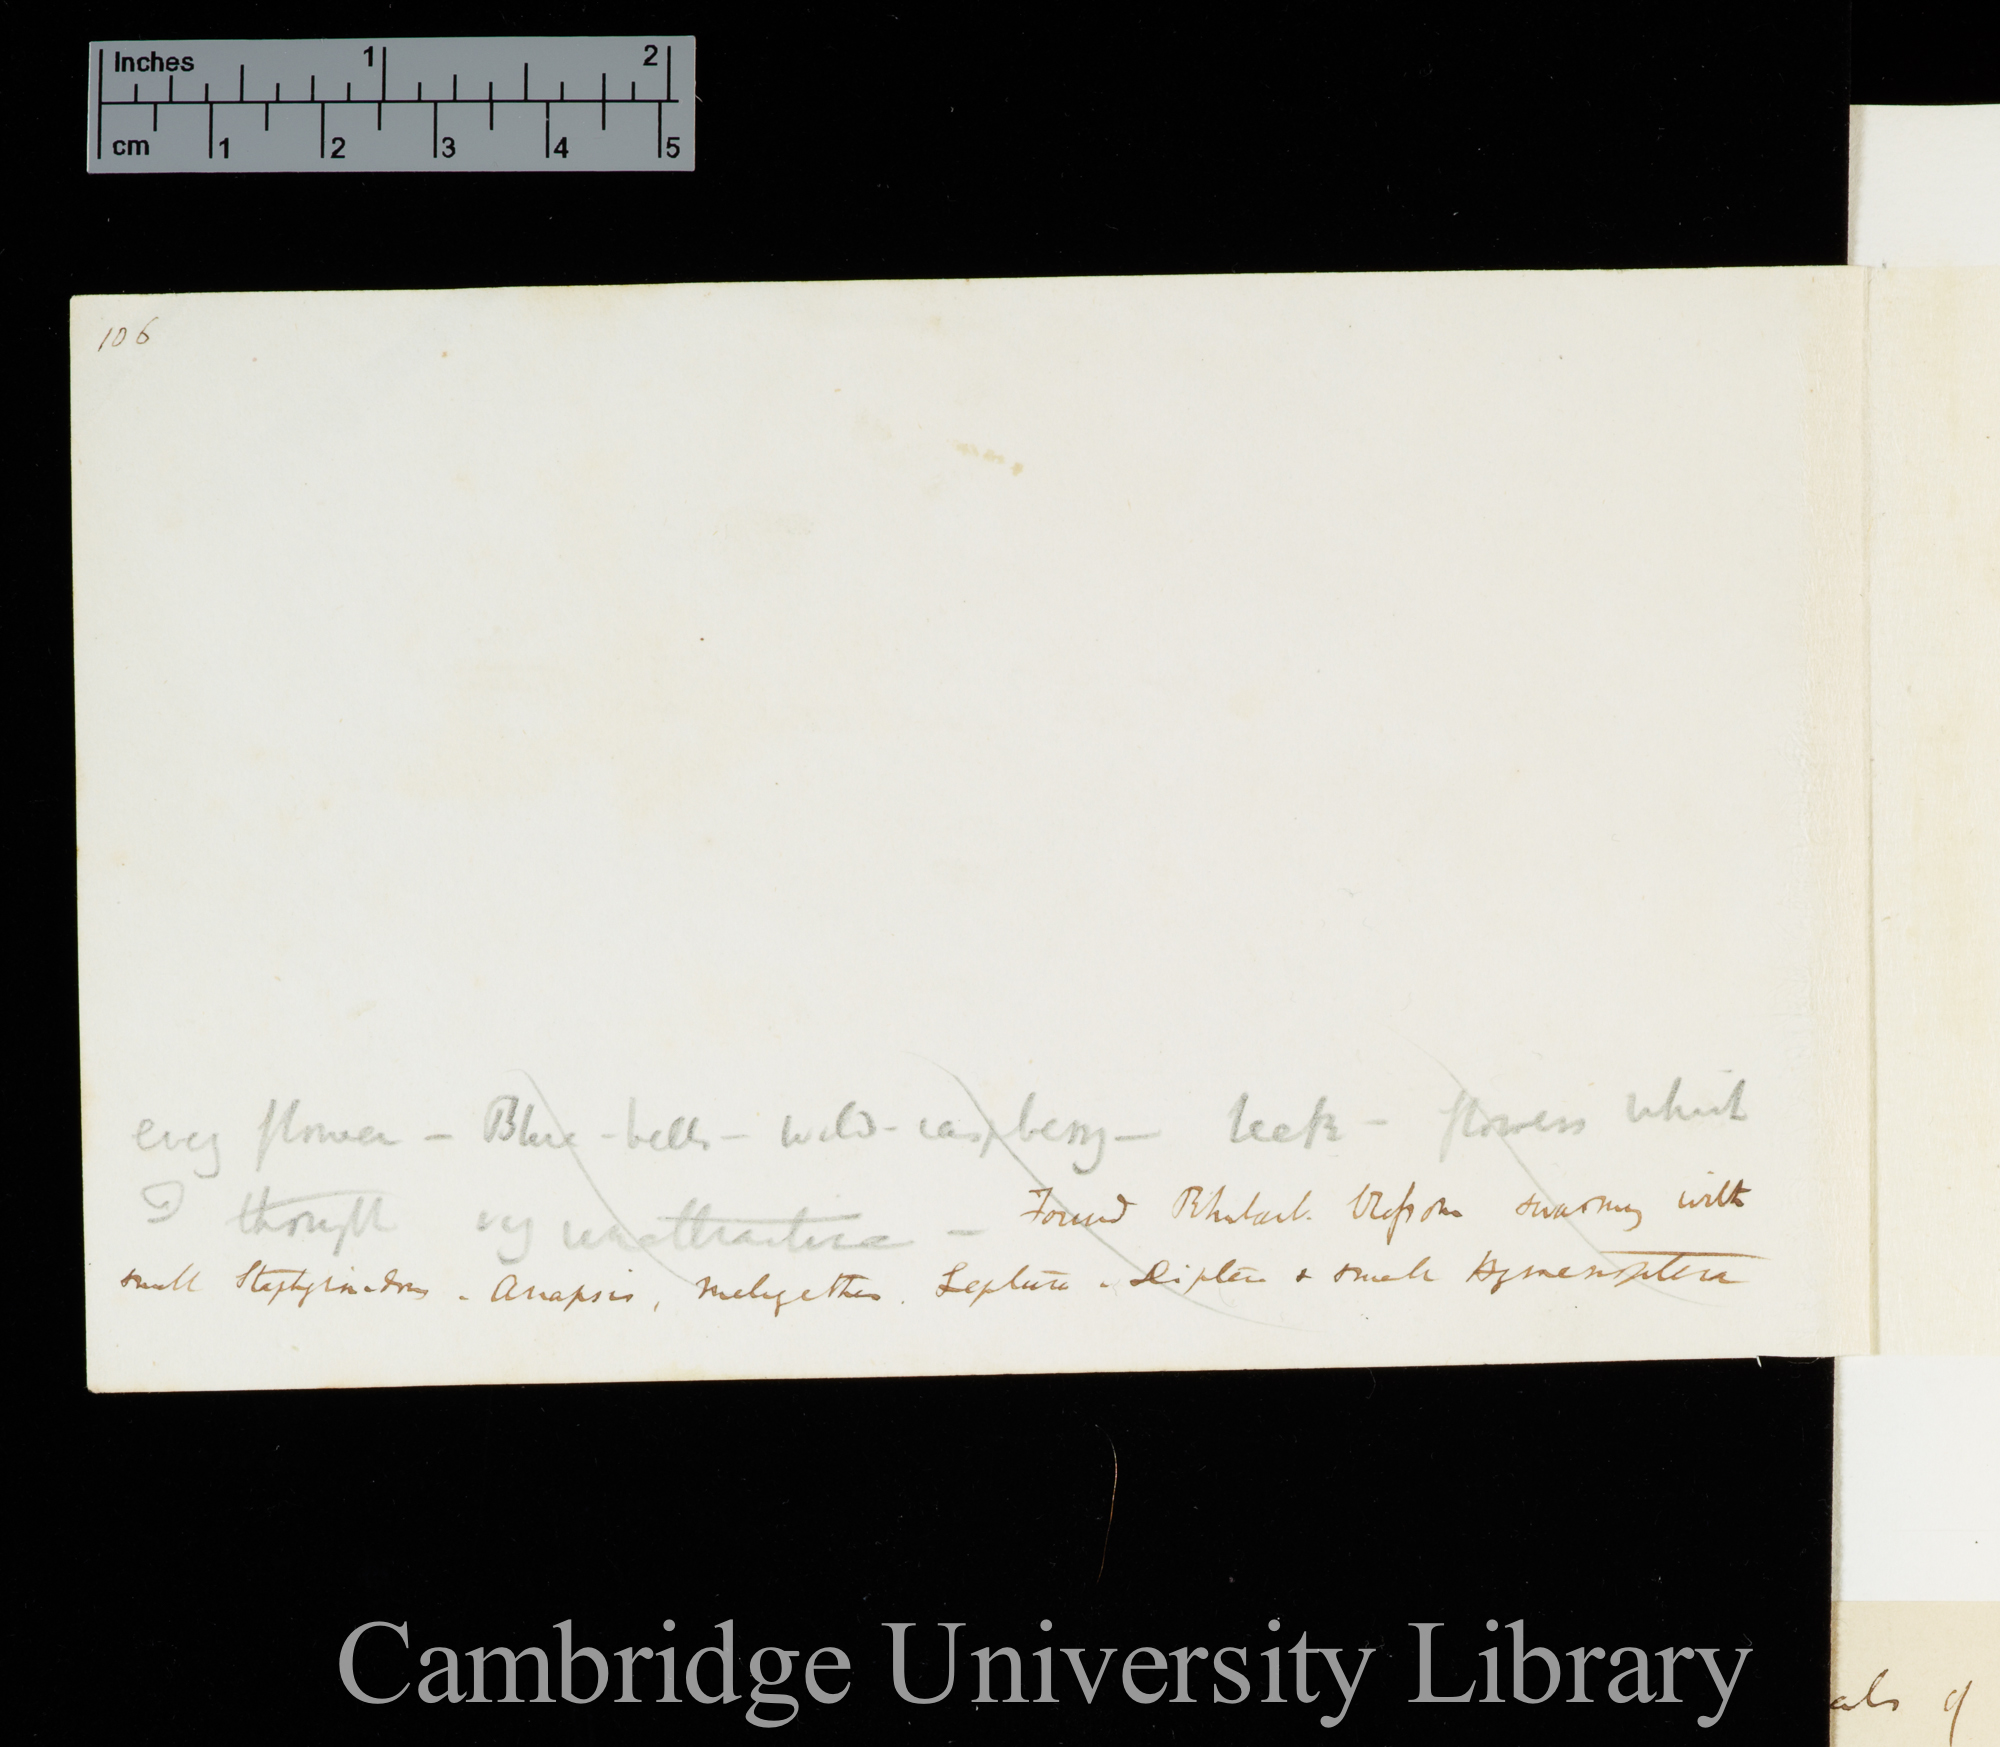 Inches 1 2
cm 1 2 3 4 5
106
every flower – Blue-bells – wild-raspberry – leek – flowers which
I thought very unattractive –
Found Rhubarb blossom swarming with
small Staphylinidous - Anaspis, Meligethes. Leptura - Diptera & small Hymenoptera
Cambridge University Library